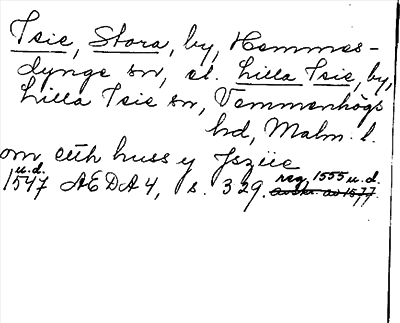 Isie, Stora, by, Hemmes-
dynge sn, el. Lilla Isie, by,
Lilla Isie sn, Vemmenhögs
hd, Malm. l.
om etth huss y Jsziie
1547 u.d. AEDA 4, s. 329. reg. 1555 u.d.
avskr. av 1577.